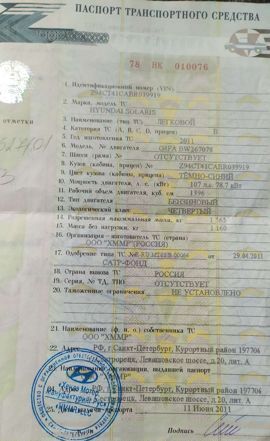 ПАСПОРТ ТРАНСПОРТНОГО СРЕДСТВА
78 НК 010076
отметки
1. Идентификационный номер (VIN) Z94CT41CABR039919
2. Марка, модель ТС HYUNDAI SOLARIS
3. Наименование (тип ТС) ЛЕГКОВОЙ
4. Категория ТС (А, В, С, D, прицеп) В
5. Год изготовления ТС 2011
6. Модель, № двигателя G4FA BW267078
7. Шасси (рама) № ОТСУТСТВУЕТ
8. Кузов (кабина, прицеп) № Z94CT41CABR039919
9. Цвет кузова (кабины, прицепа) ТЁМНО-СИНИЙ
10. Мощность двигателя, л. с. (кВт) 107 л.с. 78.7 кВт
11. Рабочий объем двигателя, куб. см 1396
12. Тип двигателя БЕНЗИНОВЫЙ
13. Экологический класс ЧЕТВЕРТЫЙ
14. Разрешенная максимальная масса, кг 1 565
15. Масса без нагрузки, кг 1 160
16. Организация – изготовитель ТС (страна)
ООО "ХММР" (РОССИЯ)
17. Одобрение типа ТС № от 29.04.2011
САТР-ФОНД
18. Страна вывоза ТС РОССИЯ
19. Серия, № ТД, ТПО ОТСУТСТВУЕТ
20. Таможенные ограничения НЕ УСТАНОВЛЕНО
21. Наименование (ф. и. о.) собственника ТС
ООО "ХММР"
22. Адрес РФ, г. Санкт-Петербург, Курортный район 197704
Сестрорецк, Левашовское шоссе, д.20, лит. А
23. Наименование организации, выдавшей паспорт
24. РФ, г. Санкт-Петербург, Курортный район 197704
Сестрорецк, Левашовское шоссе, д.20, лит. А
25. паспорта 11 Июня 2011
Подпись